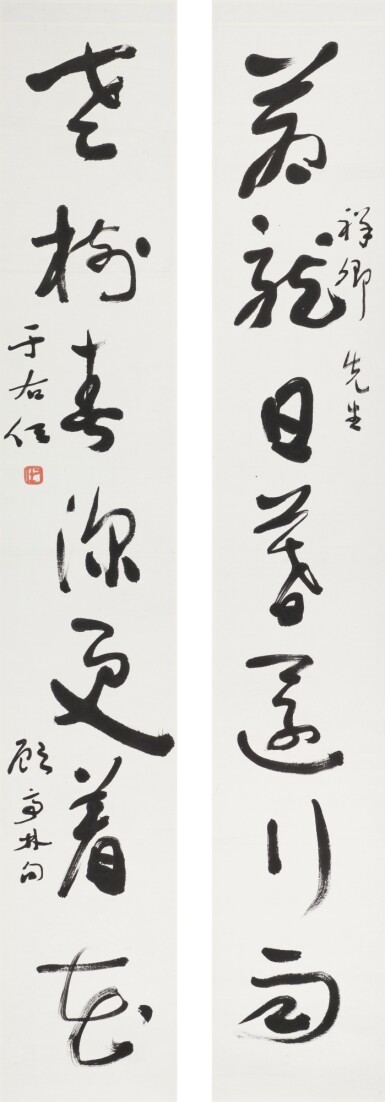 蒼龍日暮還行雨
祥卿先生
老樹春深更着花
顧亭林句
于右任